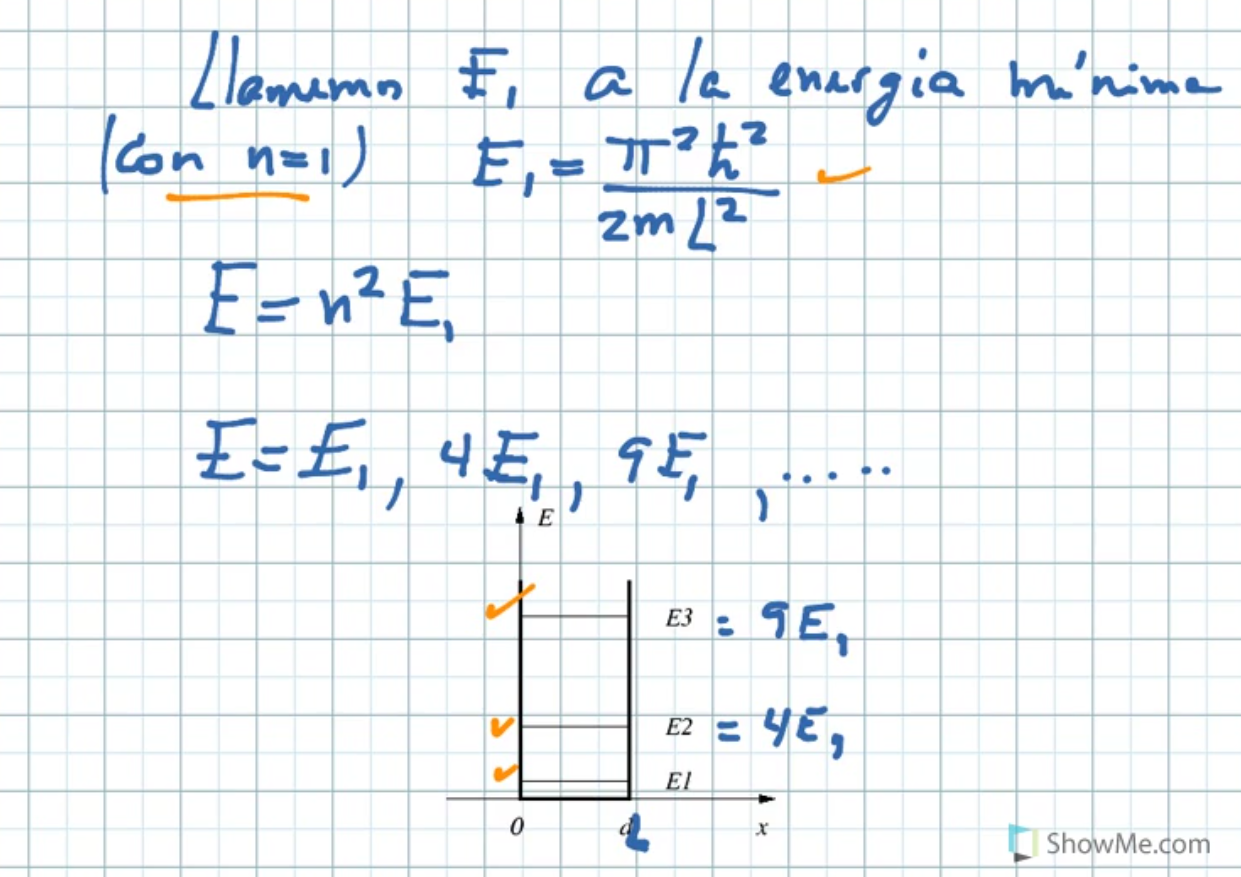 Llamemos E₁ a la energía mínima
(Con n=1) E₁ = π²ħ² / 2mL²
E = n²E₁
E = E₁, 4E₁, 9E₁, .....
E
E3 = 9E₁
E2 = 4E₁
E1
0 d L x
ShowMe.com